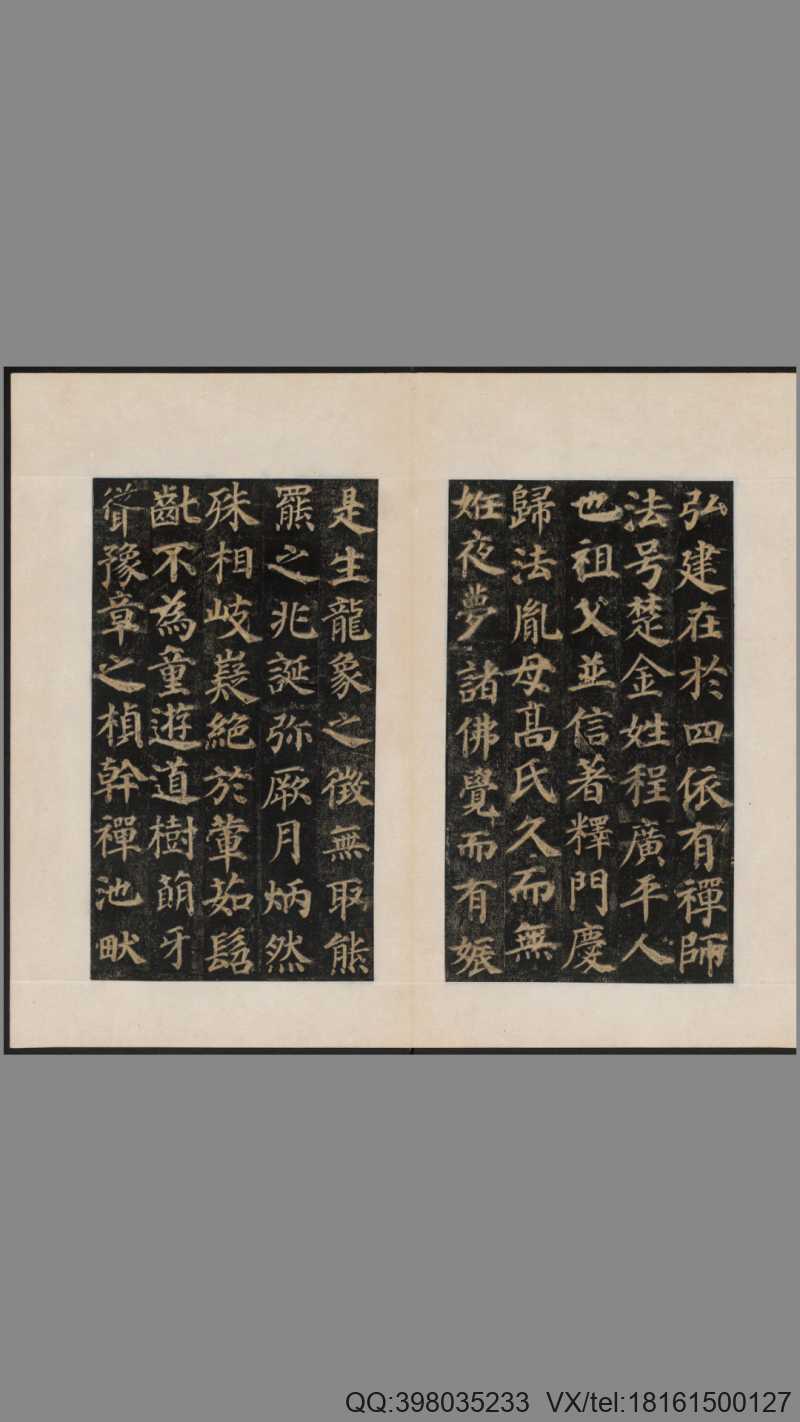 弘建在於四依有禪師
法号楚金姓程廣平人
也祖父並信著釋門慶
歸法胤母高氏久而無
姙夜夢諸佛覺而有娠
是生龍象之徵無取熊
羆之兆誕弥厥月炳然
殊相岐嶷絕於葷茹髫
齔不為童遊道樹萌牙
聳豫章之楨幹禪池畎
QQ:398035233 VX/tel:18161500127